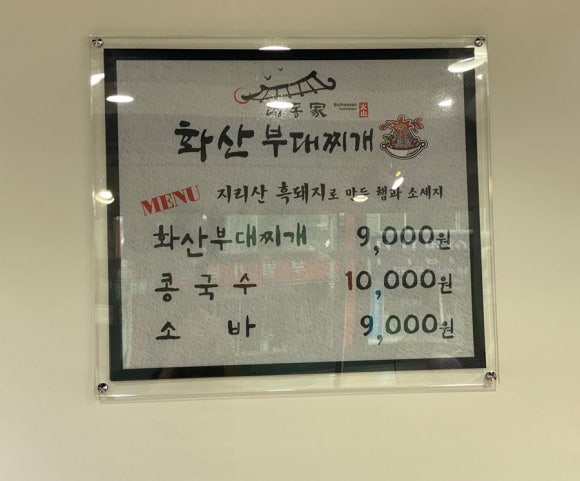 동家
火山
화산부대찌개
MENU 지리산 흑돼지로 만든 햄과 소세지
화산부대찌개 9,000원
콩국수 10,000원
소바 9,000원